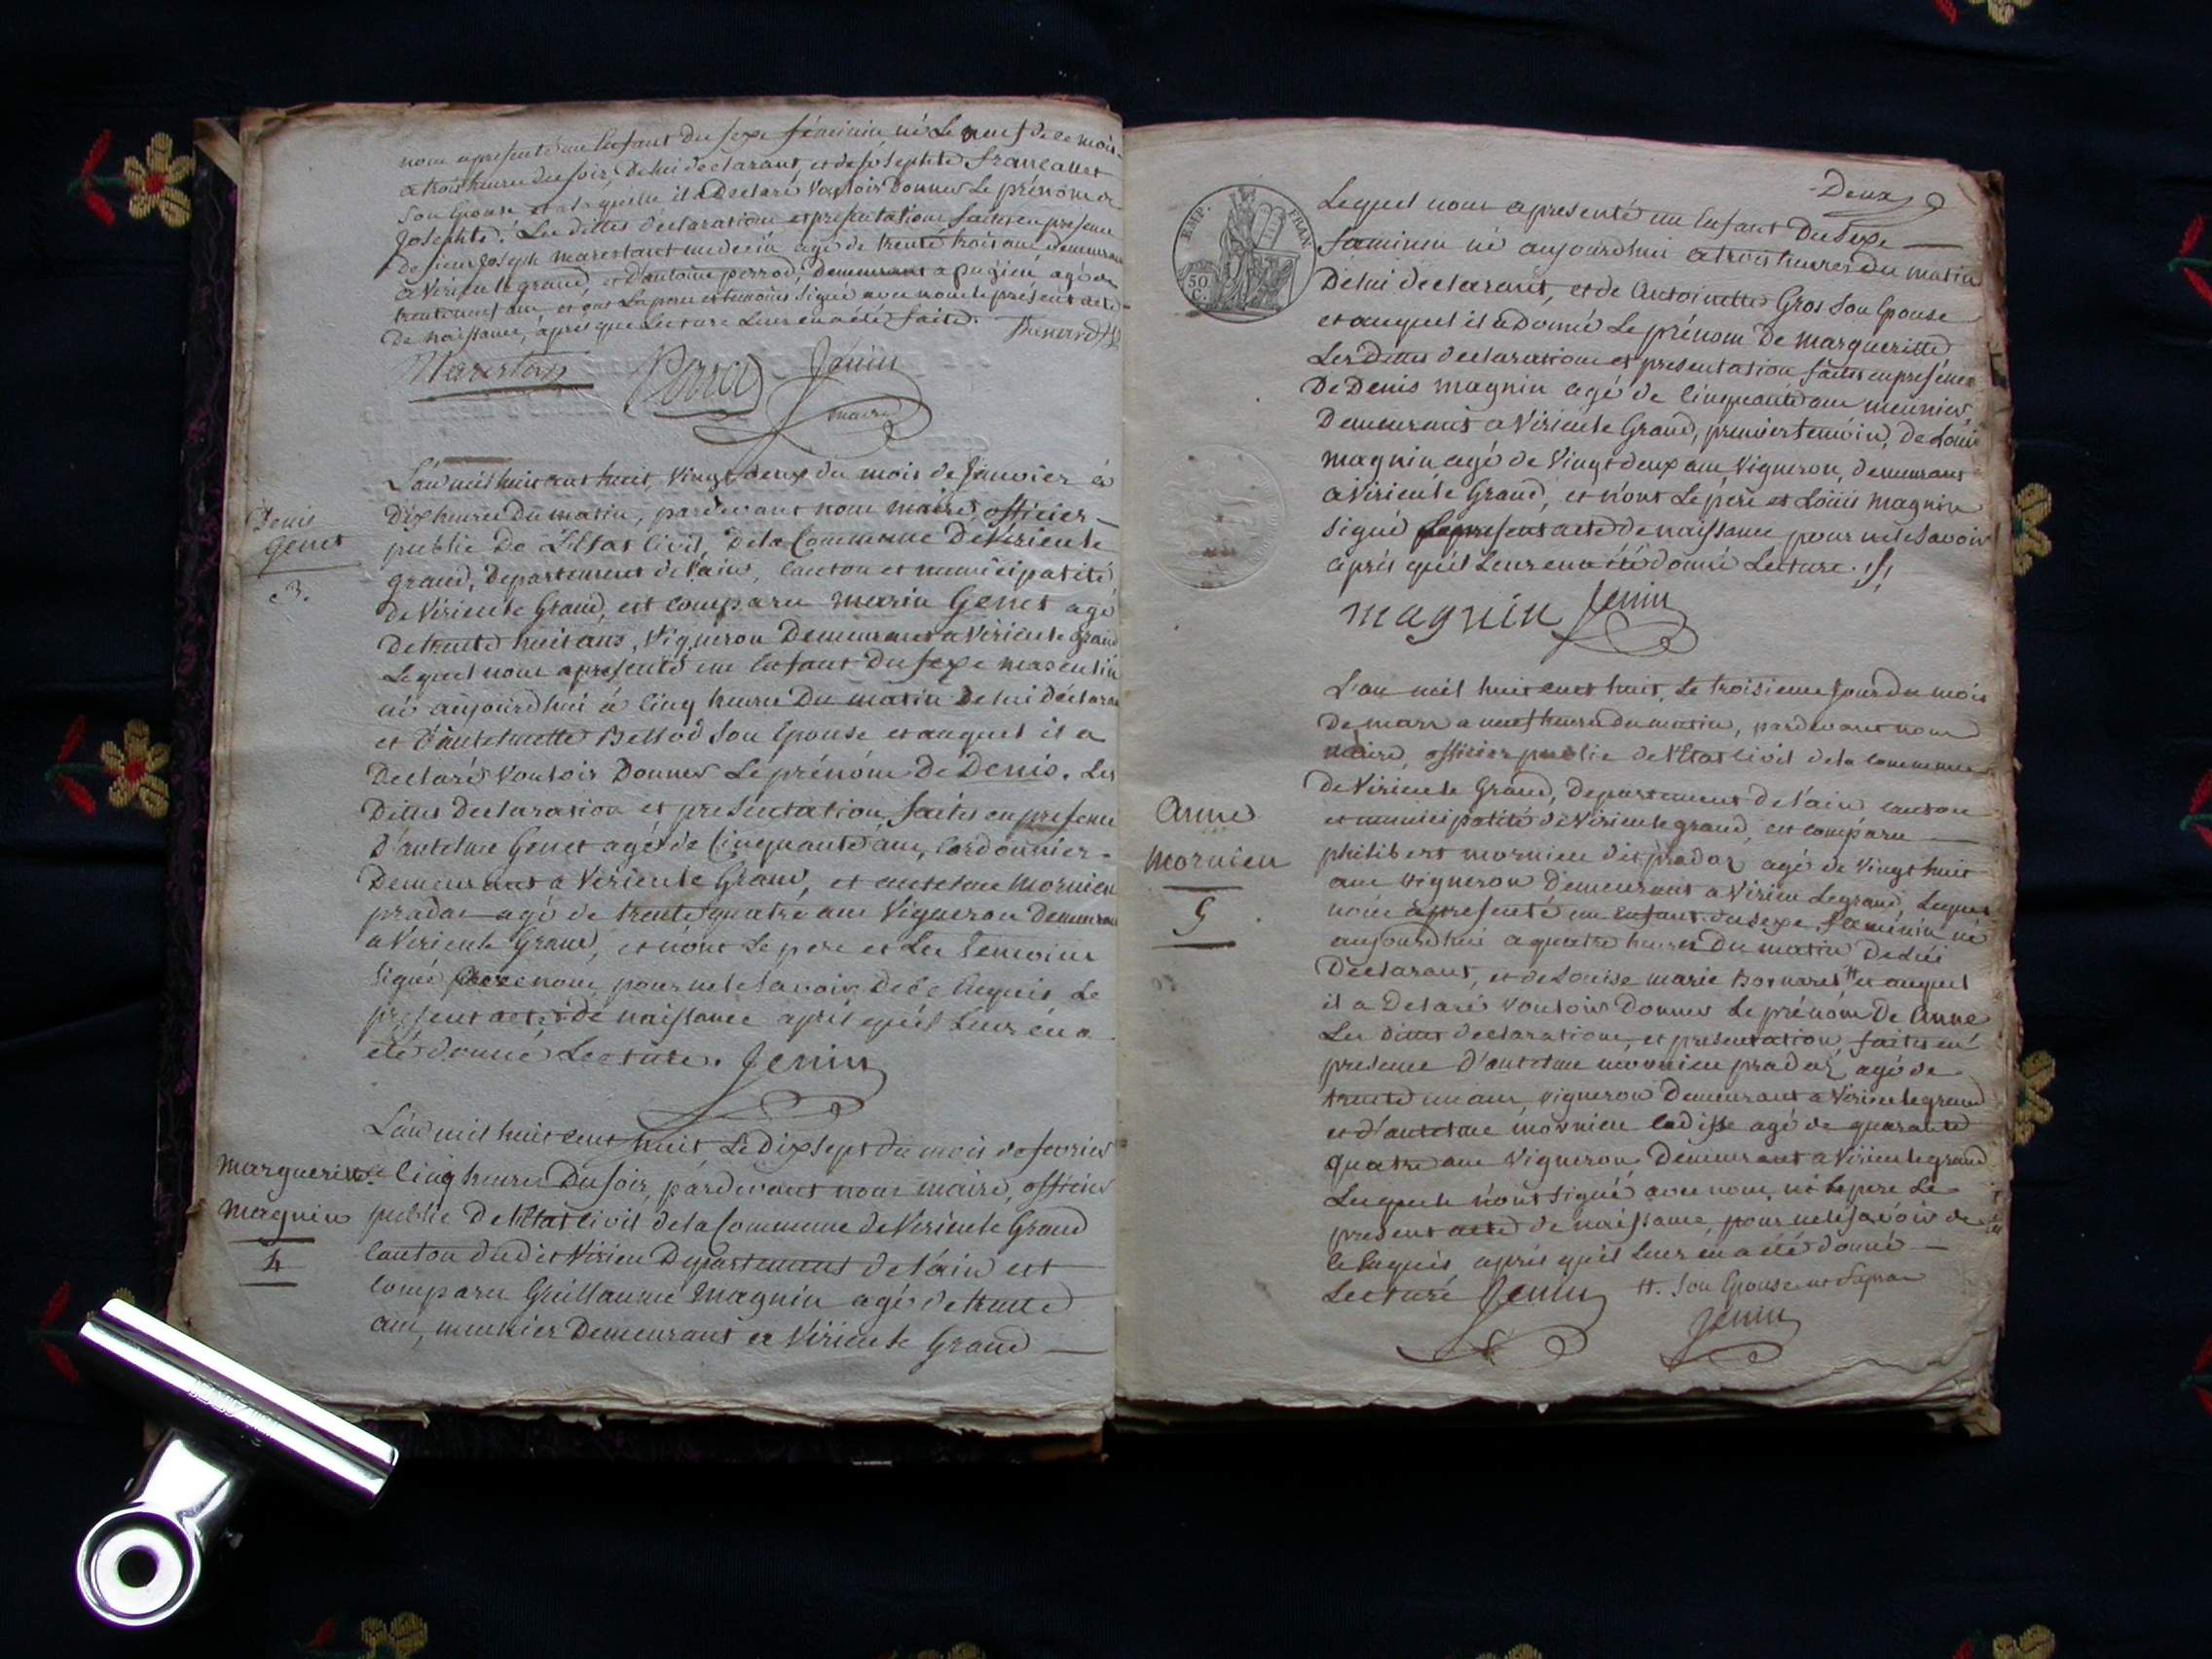 nous a présenté un Enfant du sexe féminin né Le neuf de ce mois
a trois heures du soir De lui declarant, et de joséphte francallet
son Epouse et a laquelle il a Declaré Vouloir Donner Le prénom de
Josephte. Les dittes déclarations et présentations faittes en presence
de sieur Joseph marestant medecin agé de trente trois ans demeurant
a Virieu le grand, et D'antoine perrod, Demeurant a pugieu agé de
trente neuf ans, et ont Le pere et temoins signé avec nous le présent acte
de naissance, après que Lecture Leur en a été faite.
Marestan Jenin
maire
L'an mil huit cent huit, vingt deux du mois de Janvier à
Denis
Dix heures Du matin, pardevant nous maire, officier
Genet
public De L'Etat Civil, De la Commune De Virieu le
3.
grand, Departement de l'ain, Canton et municipalité
de Virieu le Grand, est comparu marin Genet agé
De trente huit ans, Vigneron Demeurant a Virieu le Grand
Lequel nous a presenté un Enfant Du sexe masculin
né aujourd'hui à Cinq heures Du matin De lui Déclarant
et D'anthelmette Bellod Son Epouse et auquel il a
Declaré Vouloir Donner Le prénom De Denis. Les
Dittes Declaration et présentation faites en presence
D'antelme Genet agé de Cinquante ans, Cordonnier
Demeurant a Virieu le Grand, et antelme Mornieu
pradar agé de trente quatre ans Vigneron Demeurant
a Virieu le Grand, et n'ont Le pere et Les Temoins
signé avec nous, pour ne le savoir De Ce Enquis Le
present acte de naissance après qu'il Leur en a
été donné Lecture. Jenin
L'an mil huit cent huit Le Dix sept du mois de fevrier
Marguerite
a Cinq heures Du soir, pardevant nous maire, officier
Magnin
public De l'Etat Civil de la Commune de Virieu le Grand
4
Canton du dit Virieu Departement de l'ain est
Comparu Guillaume Magnin agé de trente
ans, meunier Demeurant a Virieu le Grand
Deux
EMP. FRAN
50 C.
Lequel nous a presenté un Enfant Du Sexe
faminin né aujourdhui a trois heures du matin
De lui declarant, et de Antoinette Gros Son Epouse
et auquel il a Donné Le prénom De margueritte
Les Dittes declarations et presentation faites en présence
De Denis magnin agé de Cinquante ans meunier
Demeurant a Virieu le Grand, premier temoin, De Louis
Magnin agé de Vingt deux ans Vigneron, demeurant
a Virieu le Grand, et n'ont Le père et Louis Magnin
signé Le present acte de naissance pour ne le savoir
après qu'il Leur en a été donné Lecture.
magnin Jenin
L'an mil huit cent huit, Le troisieme Jour du mois
De mars a neuf heures du matin, pardevant nous
maire, officier public de l'Etat Civil de la Commune
De Virieu le Grand, Departement de l'ain Canton
Anne
et municipalité de Virieu le grand, est Comparu
Mornieu
philibert mornieu dit pradar agé de Vingt huit
ans Vigneron Demeurant a Virieu Le grand, Lequel
5
nous a presenté un Enfant du sexe faminin né
aujourdhui a quatre heures Du matin De Lui
Declarant, et de Louise marie Bornarel # et auquel
il a Delaré Vouloir Donner Le prénom De Anne
Les dittes declarations et presentation faites en
presence D'antelme mornieu pradar, agé de
trente un ans, Vigneron Demeurant a Virieu le grand
et d'antelme mornieu Ladisse agé de quarante
quatre ans Vigneron Demeurant a Virieu le grand
Lesquels n'ont signé avec nous, ni Le pere Le
present acte de naissance pour ne le savoir de
ce Enquis après qu'il Leur en a été donné
Lecture Jenin # Son Epouse
Jenin